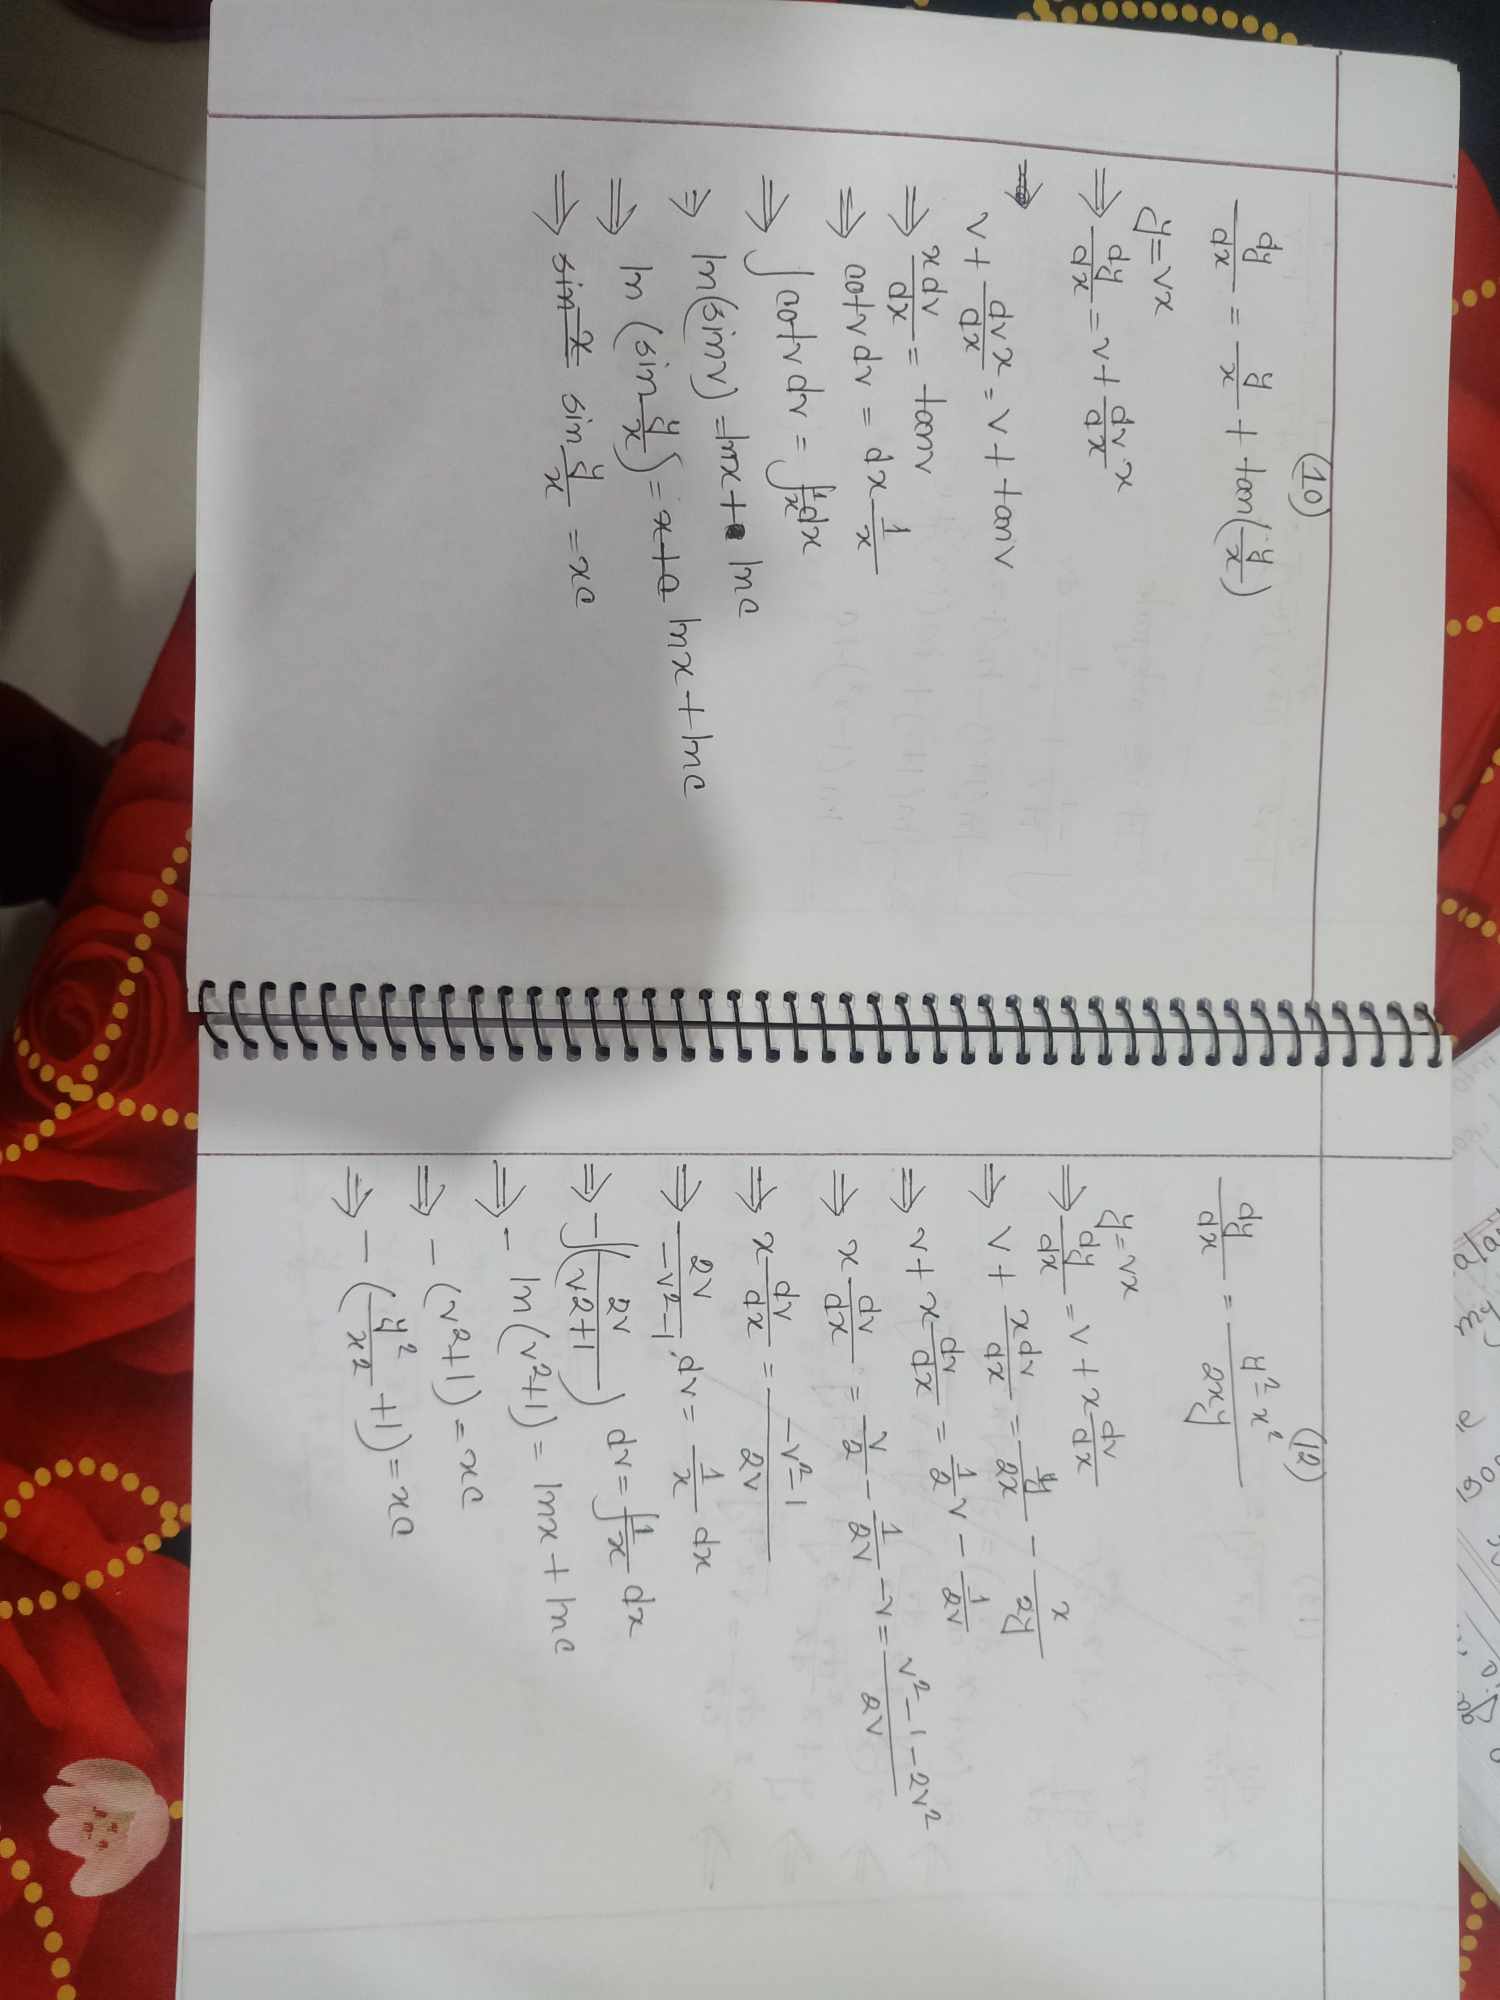 (10)
dy/dx = y/x + tan(y/x)
y=vx
⇒ dy/dx = v+ dv x/dx
⇒
v+ dvx/dx = v + tanv
⇒ xdv/dx = tanv
⇒ cotv dv = dx 1/x
⇒ ∫cotv dv = ∫1/x dx
⇒ ln(sinv) = lnx + lnc
⇒ ln (sin y/x) = x+c lnx + lnc
⇒ sin x sin y/x = xc
(12)
dy/dx = y²-x²/2xy
y=vx
⇒ dy/dx = v + x dv/dx
⇒ v + xdv/dx = y/2x - x/2y
⇒ v+ x dv/dx = 1/2 v - 1/2v
⇒ x dv/dx = v/2 - 1/2v - v = v²-1-2v²/2v
⇒ x dv/dx = -v²-1/2v
⇒ 2v/-v²-1 . dv = 1/x dx
⇒ -∫(2v/v2+1) dv = ∫1/x dx
⇒ - ln(v²+1) = lnx + lnc
⇒ - (v²+1) = xc
⇒ - (y²/x2 +1) = xc